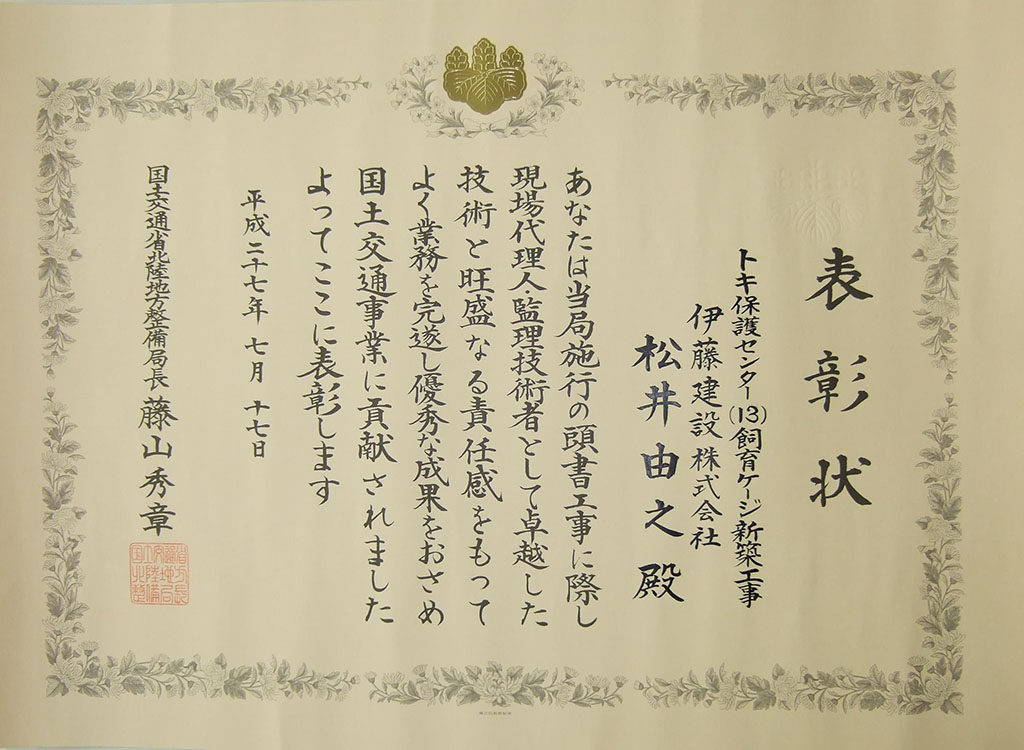 表彰状
トキ保護センター(13)飼育ケージ新築工事
伊藤建設株式会社
松井由之殿
あなたは当局施行の頭書工事に際し
現場代理人・監理技術者として卓越した
技術と旺盛なる責任感をもって
よく業務を完遂し優秀な成果をおさめ
国土交通事業に貢献されました
よってここに表彰します
平成二十七年 七月 十七日
国土交通省北陸地方整備局長 藤山秀章